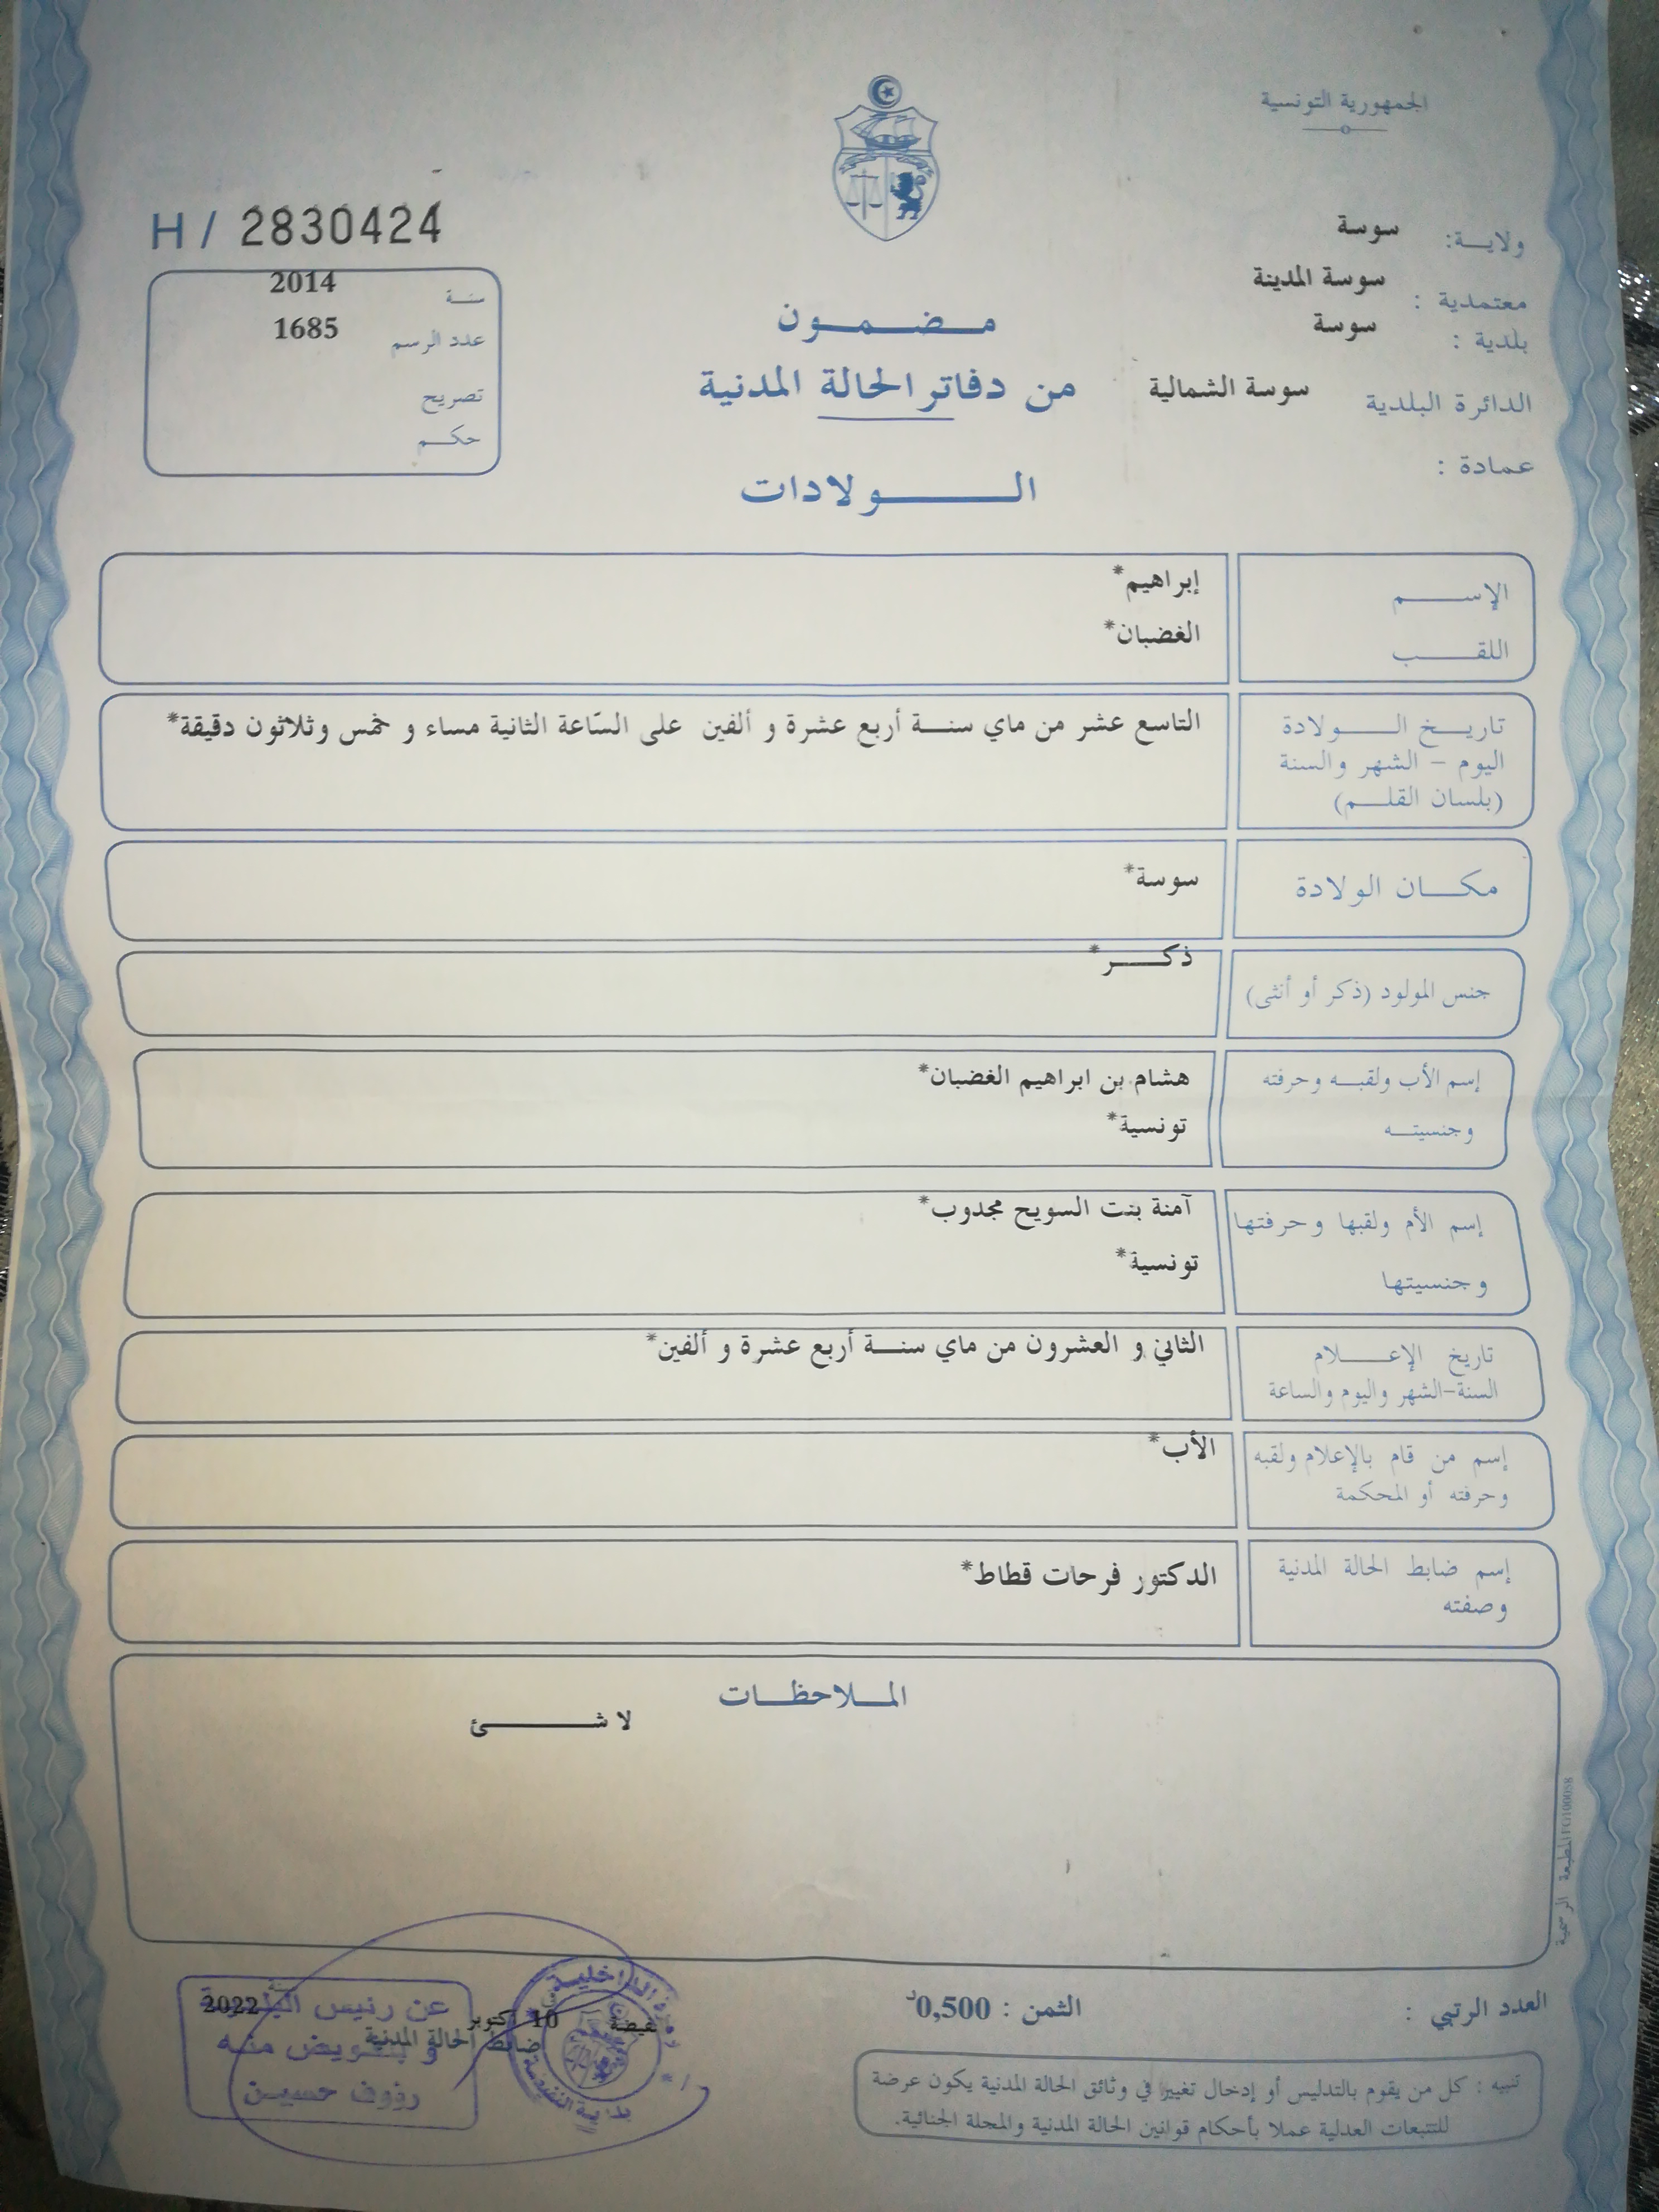 الجمهورية التونسية
H / 2830424
ولايـــة: سوسة
معتمدية : سوسة المدينة
بلدية : سوسة
الدائرة البلدية سوسة الشمالية
عمادة :
سنـة 2014
عدد الرسم 1685
تصريح
حكـــم
مـــضـــمـــون
من دفاتر الحالة المدنية
الـــــــولادات
الإســــــم إبراهيم*
اللقـــــب الغضبان*
تاريـــخ الـــــولادة التاسع عشر من ماي سنـــة أربع عشرة و ألفين على السّاعة الثانية مساء و خمس وثلاثون دقيقة*
اليوم – الشهر والسنة
(بلسان القلـــم)
مكـــان الولادة سوسة*
جنس المولود (ذكر أو أنثى) ذكـــــر*
إسم الأب ولقبـــه وحرفته هشام بن ابراهيم الغضبان*
وجنسيتـــه تونسية*
إسم الأم ولقبها وحرفتها آمنة بنت السويح مجدوب*
وجنسيتها تونسية*
تاريخ الإعـــــلام الثاني و العشرون من ماي سنـــة أربع عشرة و ألفين*
السنة-الشهر واليوم والساعة
إسم من قام بالإعلام ولقبه الأب*
وحرفته أو المحكمة
إسم ضابط الحالة المدنية الدكتور فرحات قطاط*
وصفته
المـــلاحظـــات
لا شـــــــئ
المطبعة الرسمية
العدد الرتبي :
الثمن : 0,500د
10 أكتوبر 2022
ضابط الحالة المدنية
عن رئيس البلدية
و بتفويض منه
رؤوف حسيـن
بلدية النفيضة
تنبيه : كل من يقوم بالتدليس أو إدخال تغيير في وثائق الحالة المدنية يكون عرضة
للتتبعات العدلية عملا بأحكام قوانين الحالة المدنية والمجلة الجنائية.